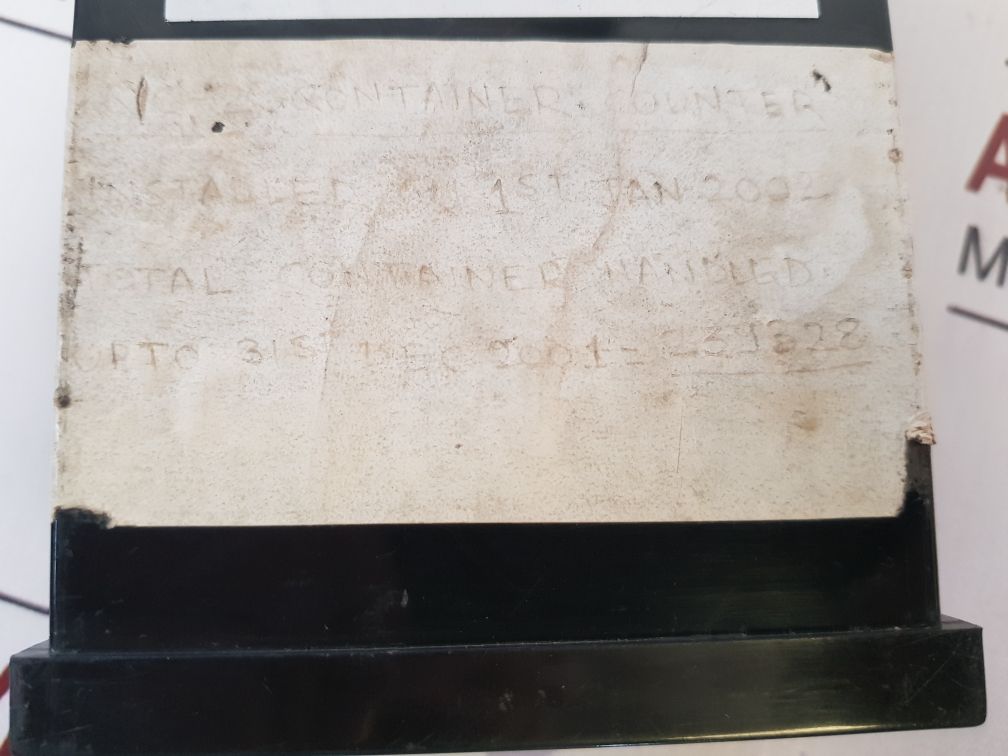 CONTAINER COUNTER
INSTALLED ON 1ST JAN 2002
TOTAL CONTAINER HANDLED
UPTO 31ST DEC 2001 =
A
M